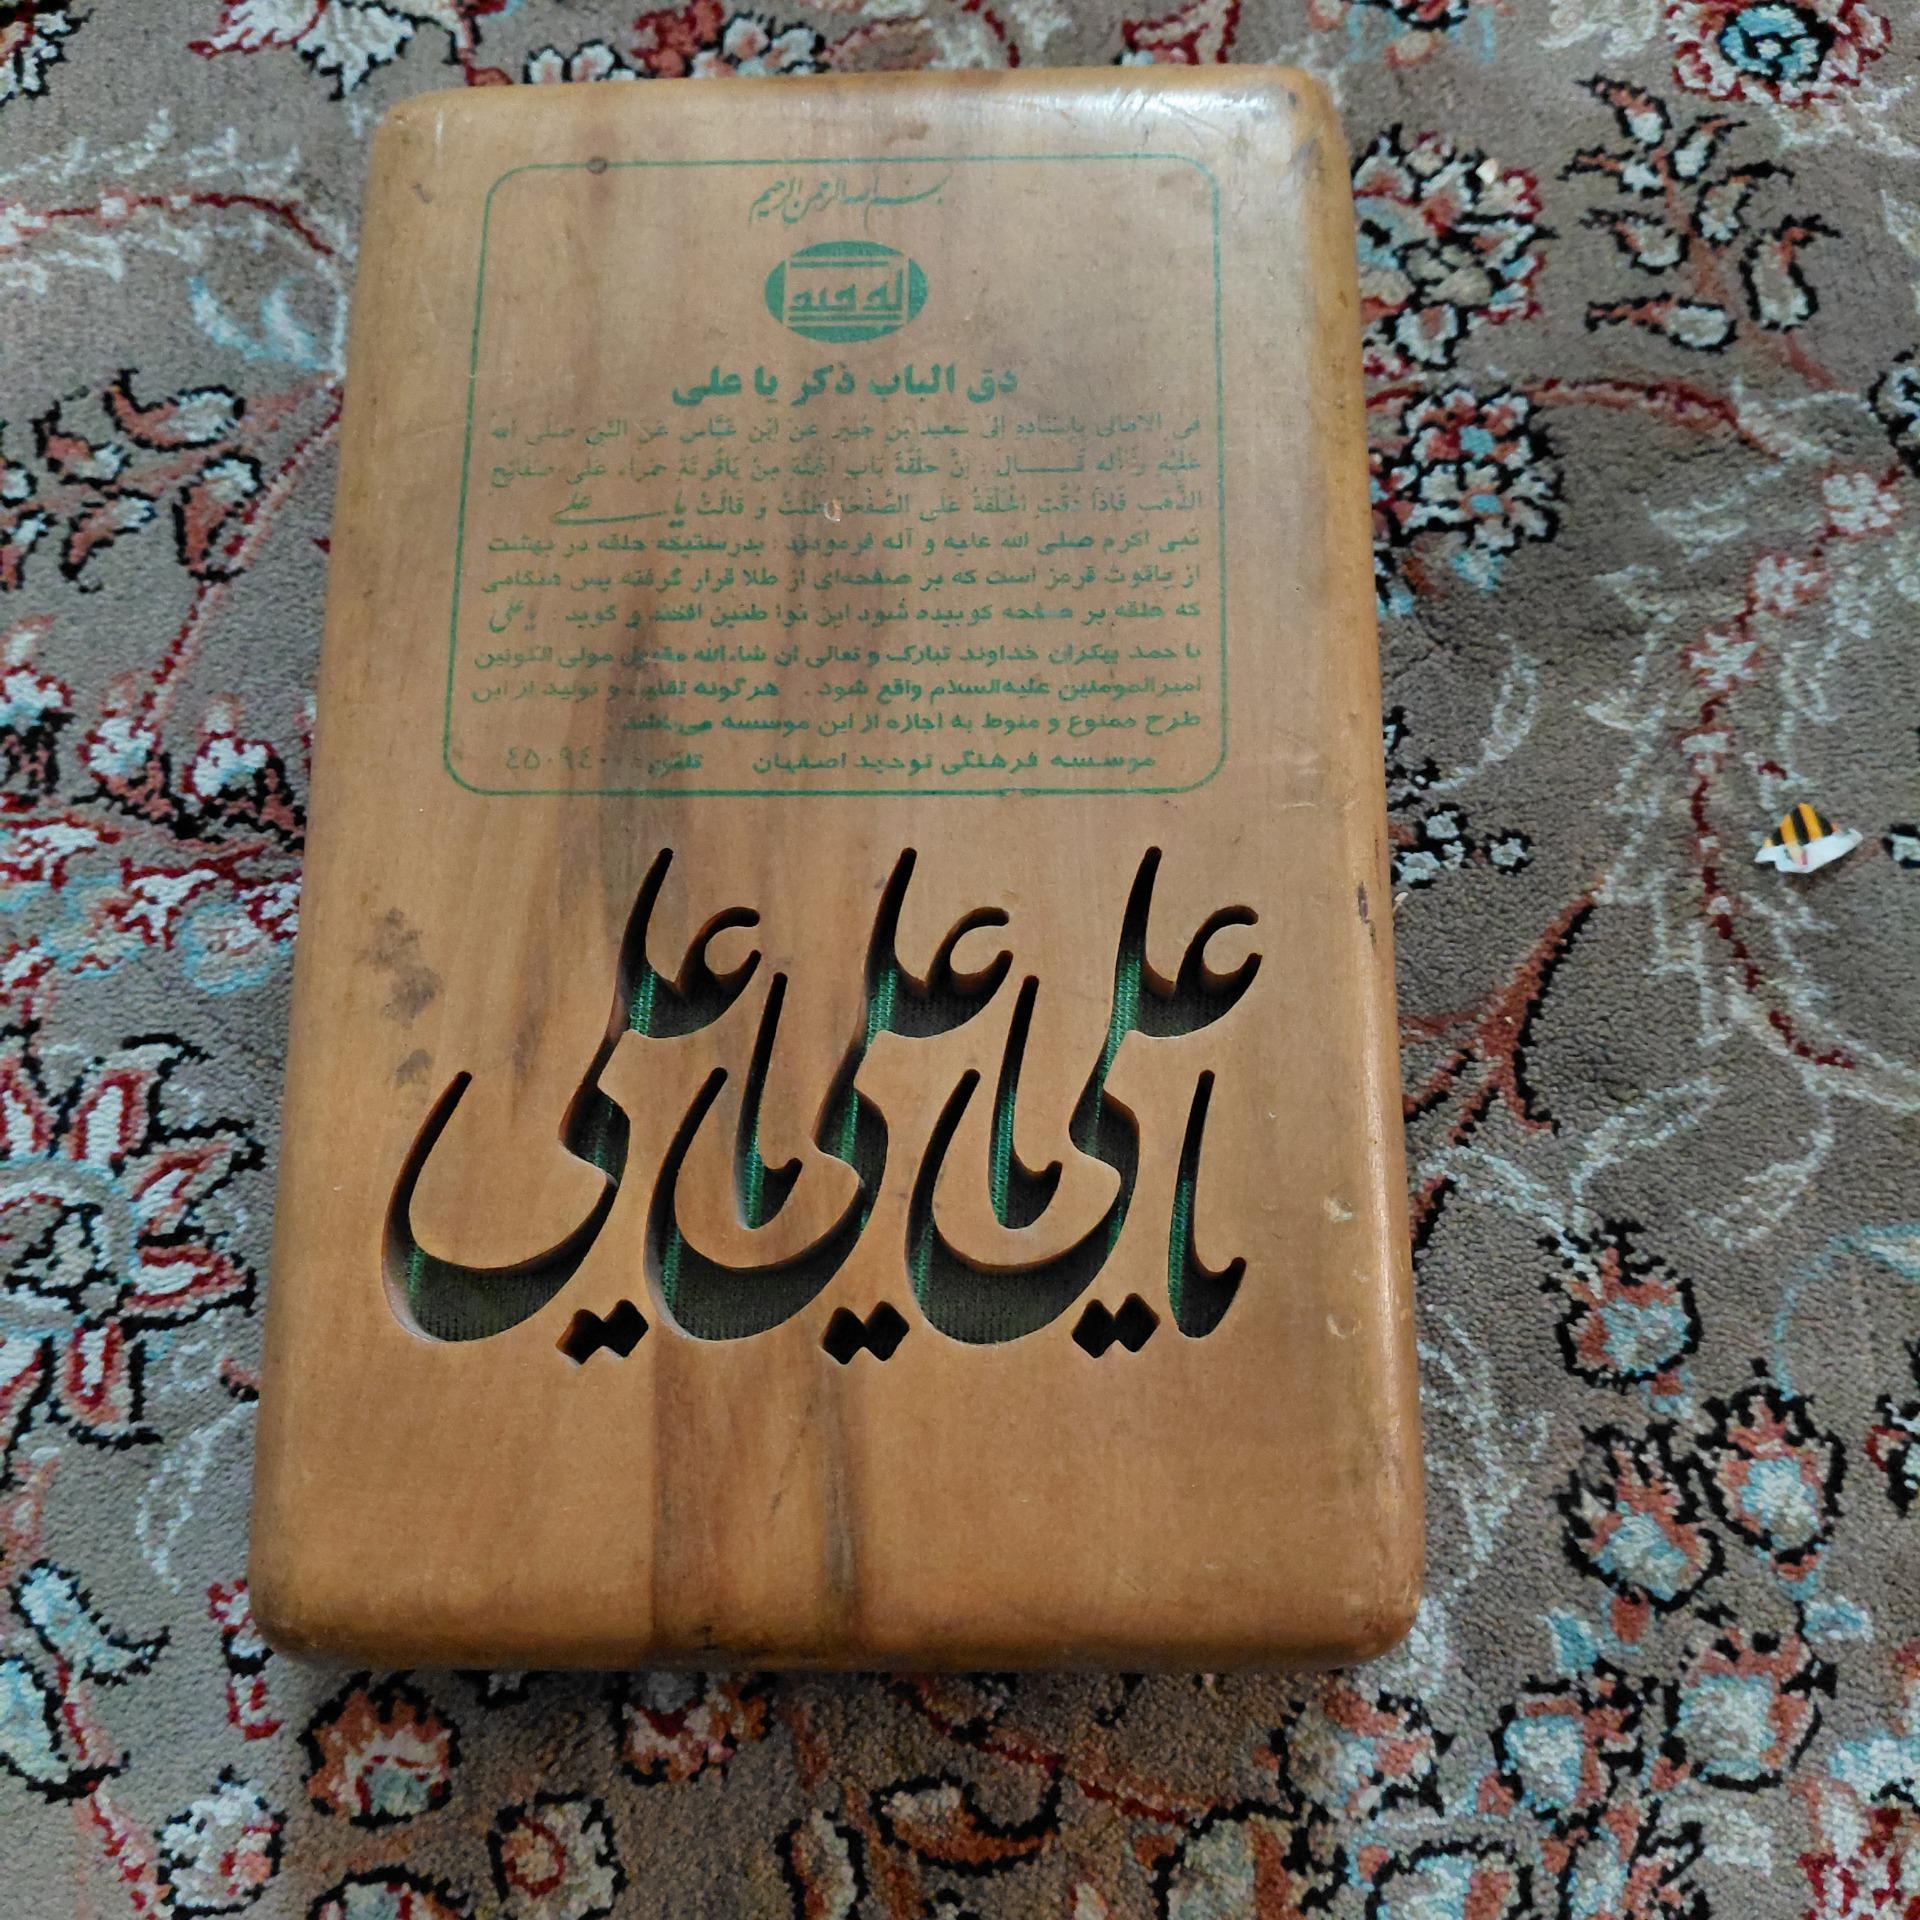 بسم الله الرحمن الرحیم
توحید
دق الباب ذکر یا علی
فی الامالی باسناده إلی سعید بن جبیر عن ابن عبّاس عن النّبی صلی الله
عَلَیْهِ وَ آله قـــال : إنَّ حَلْقَةَ بَابِ الْجَنَّةِ مِنْ یَاقُوتَةٍ حَمْراء عَلی صَفَائِحِ
الذَّهَبِ فَاِذَا دُقَّتِ الْحَلْقَةُ عَلَی الصَّفْحَةِ طَنَّتْ وَ قَالَتْ یا علی
نبی اکرم صلی الله علیه و آله فرمودند : بدرستیکه حلقه در بهشت
از یاقوت قرمز است که بر صفحه‌ای از طلا قرار گرفته پس هنگامی
که حلقه بر صفحه کوبیده شود این نوا طنین افکند و گوید : یا علی
با حمد بیکران خداوند تبارک و تعالی ان شاءالله مقبول مولی الکونین
امیرالمومنین علیه‌السلام واقع شود . هرگونه تقلید و تولید از این
طرح ممنوع و منوط به اجازه از این موسسه می‌باشد
موسسه فرهنگی توحید اصفهان تلفن :
یا علی یا علی یا علی